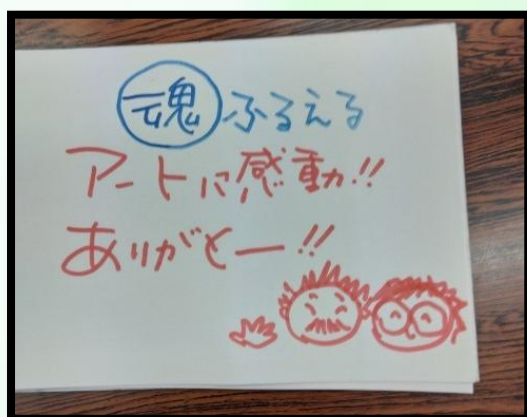 魂ふるえる
アートに感動!!
ありがとー!!